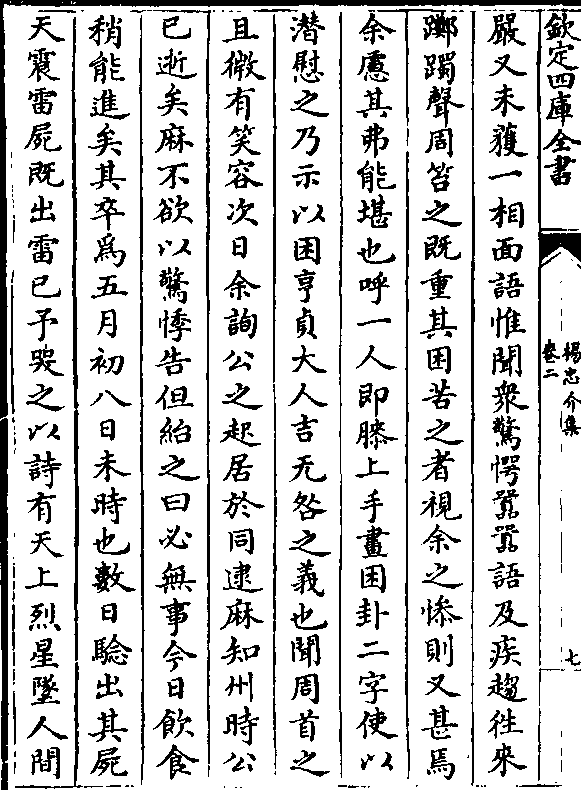 欽定四庫全書
楊忠介集
卷二
七
嚴又未獲一相面語惟聞衆驚愕囂囂語及疾趨徃來
躑躅聲周笞之既重其困苦之者視余之慘則又甚焉
余慮其弗能堪也呼一人即膝上手畫困卦二字使以
潛慰之乃示以困亨貞大人吉无咎之義也聞周首之
且微有笑容次日余詢公之起居於同逮麻知州時公
已逝矣麻不欲以驚悸告但紿之曰必無事今日飲食
稍能進矣其卒爲五月初八日未時也數日驗出其屍
天震雷屍既出雷已予哭之以詩有天上烈星墜人間